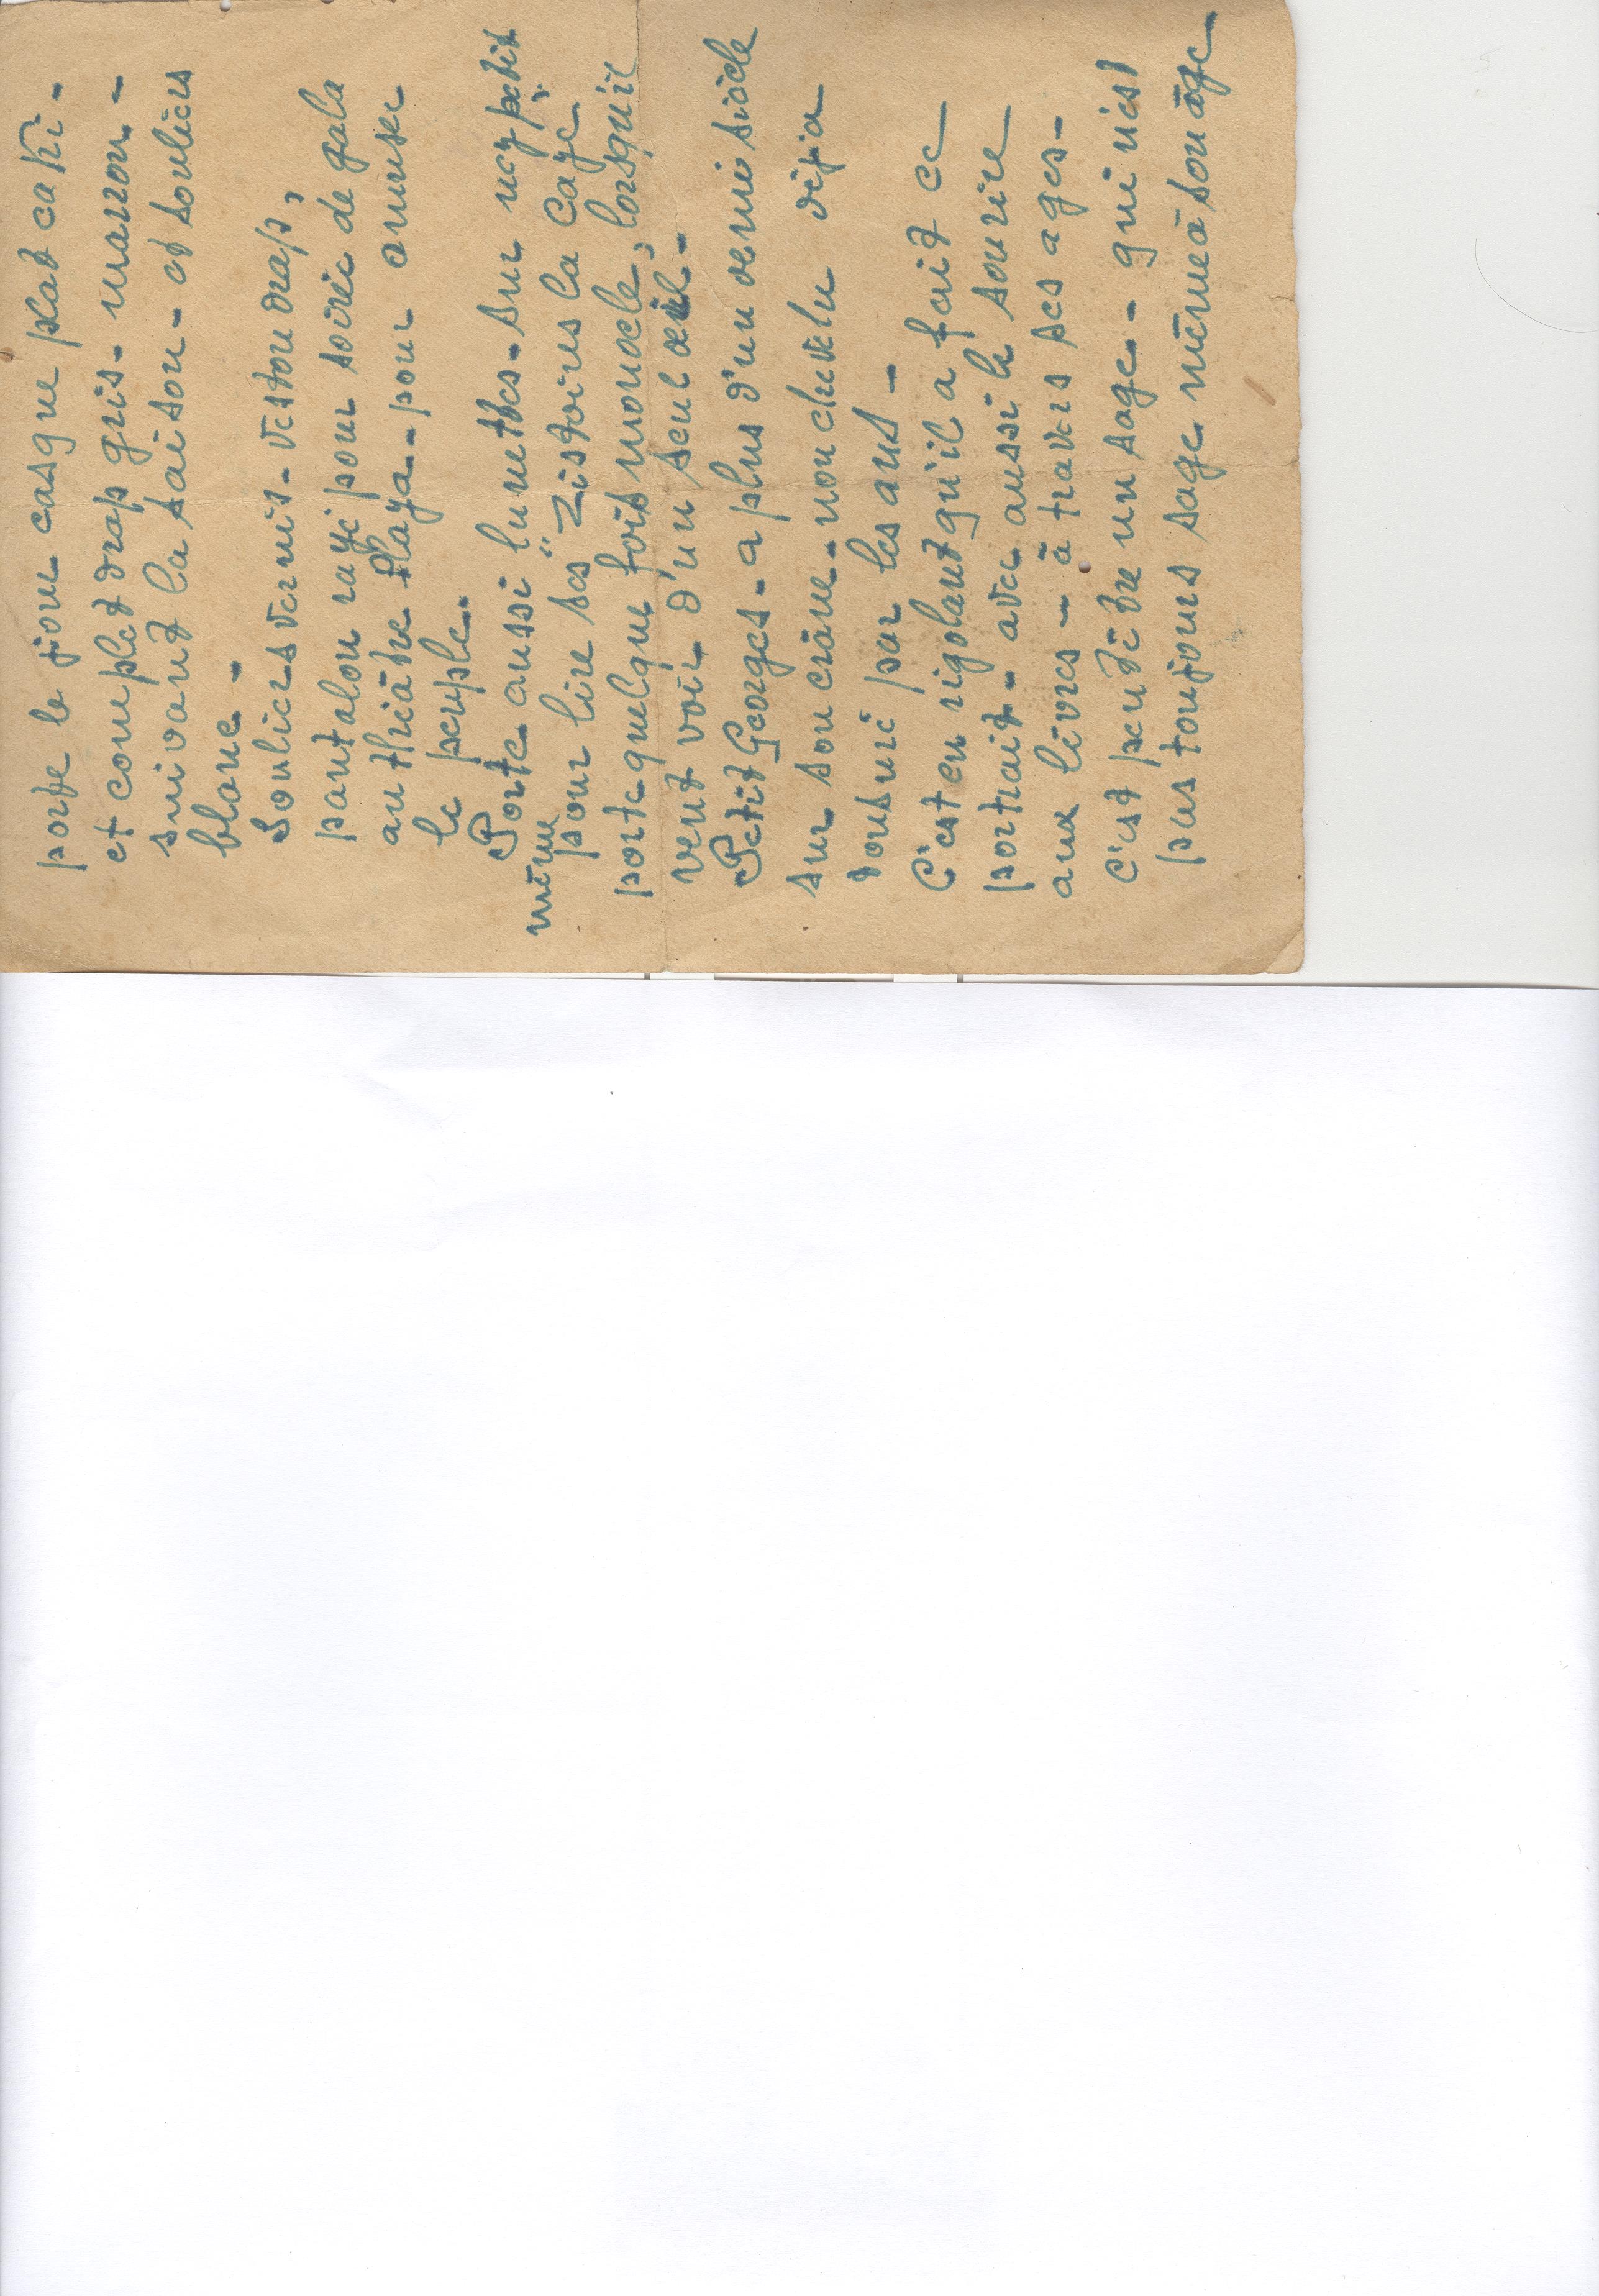 porte le jour casque plat caki -
et complet drap gris - marron -
suivant la saison - et souliers
blanc -
Souliers vernis - veston drap,
pantalon rayé pour soirée de gala
au théâtre Playa - pour amuser
le peuple.
Porte aussi lunettes - sur nez petit
même pour lire ses "Zistoires la Caye"
porte quelque fois monocle, lorsqu'il
veut voir d'un seul œil -
Petit Georges - a plus d'un demi siècle
sur son crâne - non chevelu déjà
tonsuré par les ans -
C'est en rigolant qu'il a fait ce
portrait - avec aussi le sourire
aux lèvres - à travers ses ages -
C'est peut être un sage - qui n'est
pas toujours sage même à son âge